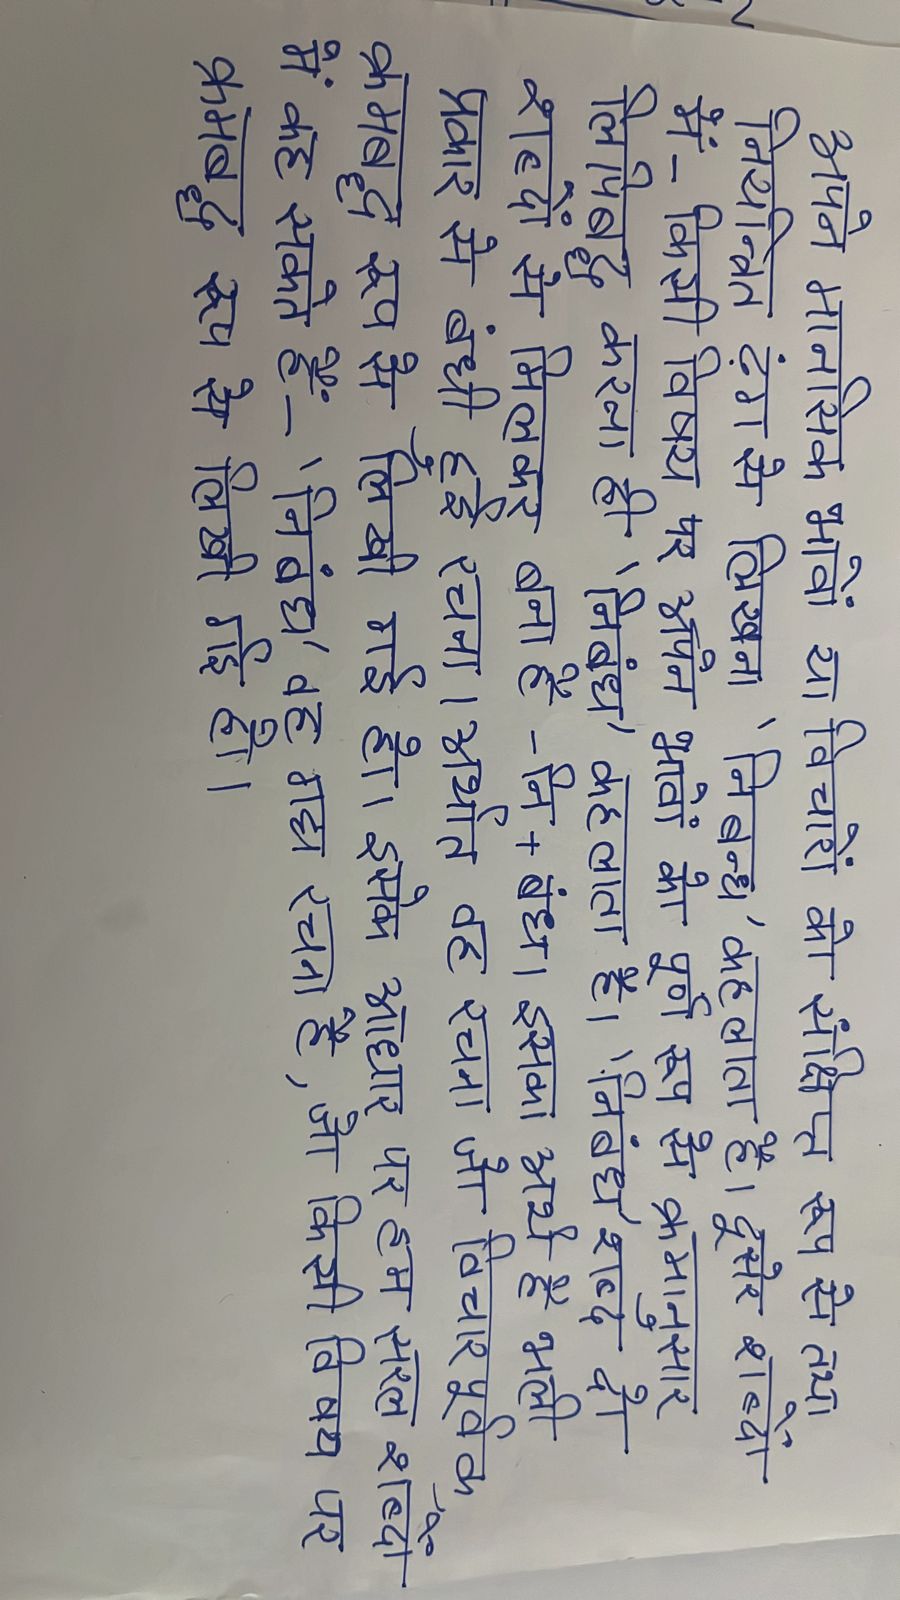 अपने मानसिक भावों या विचारों को संक्षिप्त रूप से तथा
नियन्त्रित ढ़ंग से लिखना 'निबन्ध' कहलाता है। दूसरे शब्दों
में - किसी विषय पर अपने भावों को पूर्ण रूप से क्रमानुसार
लिपिबद्ध करना ही 'निबंध' कहलाता है। 'निबंध' शब्द दो
शब्दों से मिलकर बना है - नि + बंध। इसका अर्थ है भली
प्रकार से बंधी हुई रचना। अर्थात वह रचना जो विचारपूर्वक,
क्रमबद्ध रूप से लिखी गई हो। इसके आधार पर हम सरल शब्दों
में कह सकते हैं - 'निबंध' वह गद्य रचना है, जो किसी विषय पर
क्रमबद्ध रूप से लिखी गई हो।